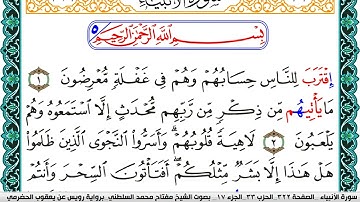 سورة الأنبياء
بِسْمِ اللَّهِ الرَّحْمَٰنِ الرَّحِيمِ
اِقْتَرَبَ لِلنَّاسِ حِسَابُهُمْ وَهُمْ فِي غَفْلَةٍ مُعْرِضُونَ ١
مَا يَأْتِيهُم مِّن ذِكْرٍ مِّن رَّبِّهِم مُّحْدَثٍ إِلَّا اسْتَمَعُوهُ وَهُمْ
يَلْعَبُونَ ٢ لَاهِيَةً قُلُوبُهُمْ وَأَسَرُّوا النَّجْوَى الَّذِينَ ظَلَمُوا
هَلْ هَذَا إِلَّا بَشَرٌ مِّثْلُكُمْ أَفَتَأْتُونَ السِّحْرَ وَأَنتُمْ
سورة الأنبياء - الصفحة ٣٢٢ - الحزب ٣٣ - الجزء ١٧ - بصوت الشيخ مفتاح محمد السلطني - برواية رويس عن يعقوب الحضرمي